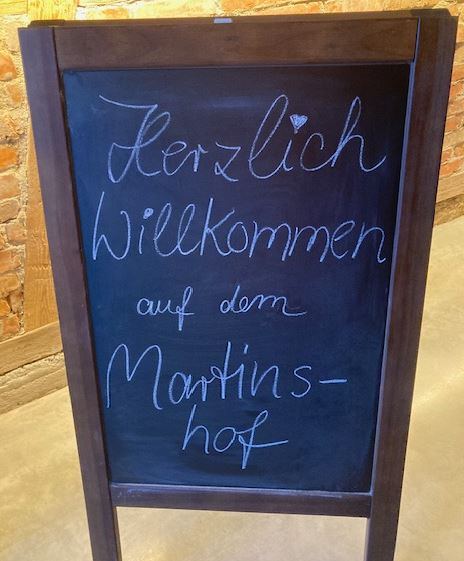 Herzlich
Willkommen
auf dem
Martins-
hof